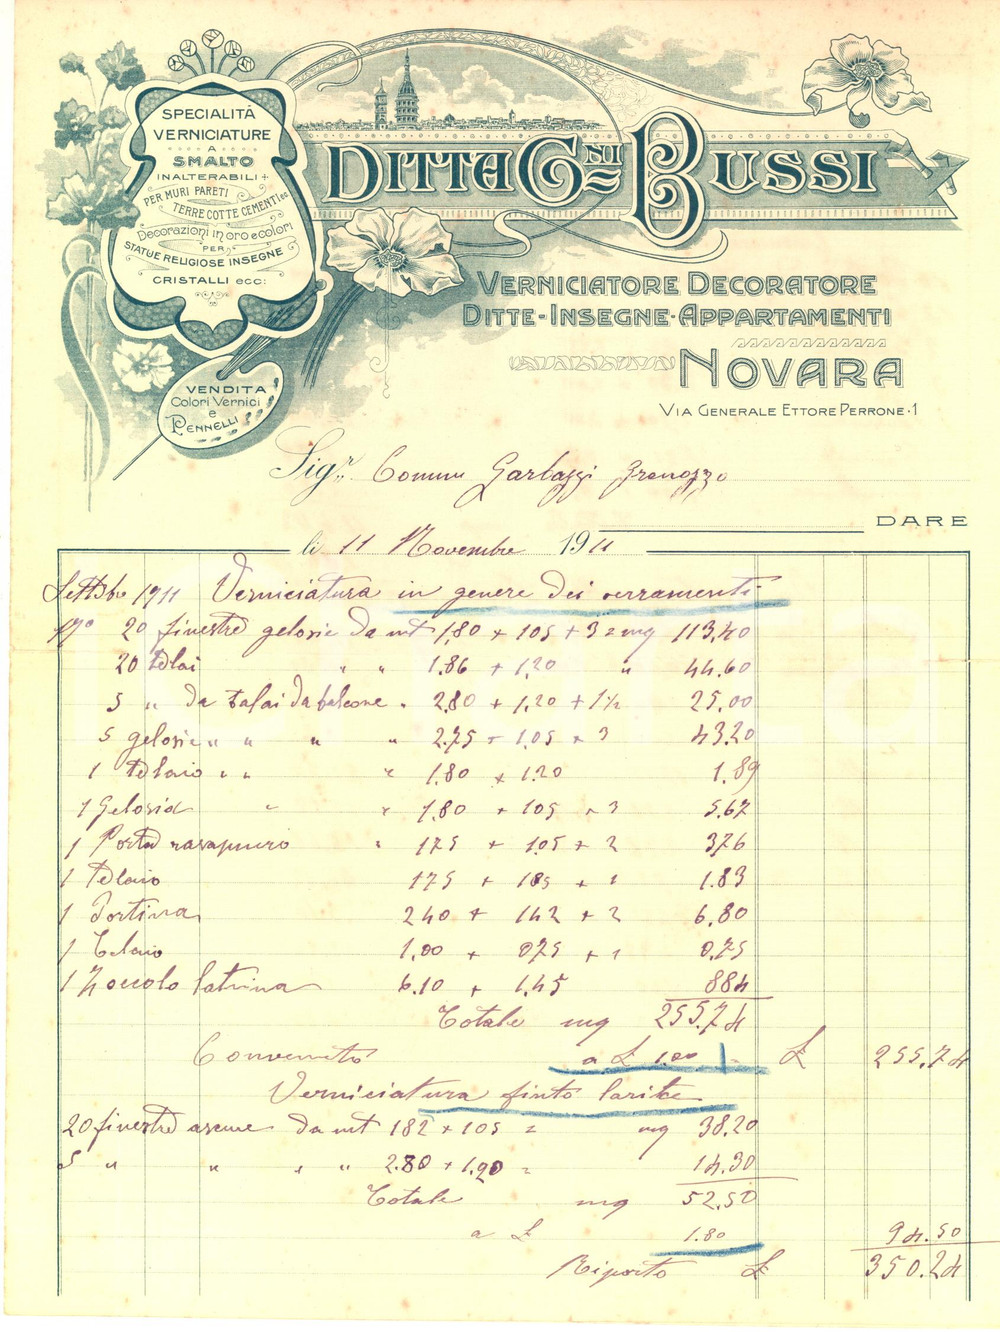 SPECIALITÀ
VERNICIATURE
A
SMALTO
INALTERABILI
PER MURI PARETI
TERRE COTTE CEMENTI ec
Decorazioni in oro e colori
PER
STATUE RELIGIOSE INSEGNE
CRISTALLI ecc:
DITTA G.NI BUSSI
VERNICIATORE DECORATORE
DITTE-INSEGNE-APPARTAMENTI
NOVARA
VIA GENERALE ETTORE PERRONE·1
VENDITA
Colori Vernici
e
PENNELLI
Sig.r
DARE
li 11 Novembre 1911
Settbre 1911 Verniciatura in genere dei serramenti
No 20 finestre gelosie da mt 1,80 + 105 + 3 = mq 113,40
20 telai " " 1.86 + 1,20 " 44.60
5 " da telai da balcone " 2.80 + 1,20 + 1½ 25,00
5 gelosie " " " " 2.75 + 1.05 + 3 43.20
1 telaio " " " 1,80 + 1.20 1.89
1 Gelosia " " 1,80 + 105 + 3 5.67
1 Porta " 175 + 1.05 + 2 3.76
1 telaio 175 + 105 + 1 1.83
1 Portina 240 + 142 + 2 6.80
1 telaio 1.00 + 075 + 1 0,75
1 Zoccolo latrina 6.10 + 1.45 884
Totale mq 255.74
Convenuto a £ 1.00 £ 255.74
Verniciatura finto larice
20 finestre da mt 182 + 105 = mq 38.20
5 " " " " 2.80 + 1,20 = 14.30
Totale mq 52.50
a £ 1.80 94.50
Riporto £ 350.24